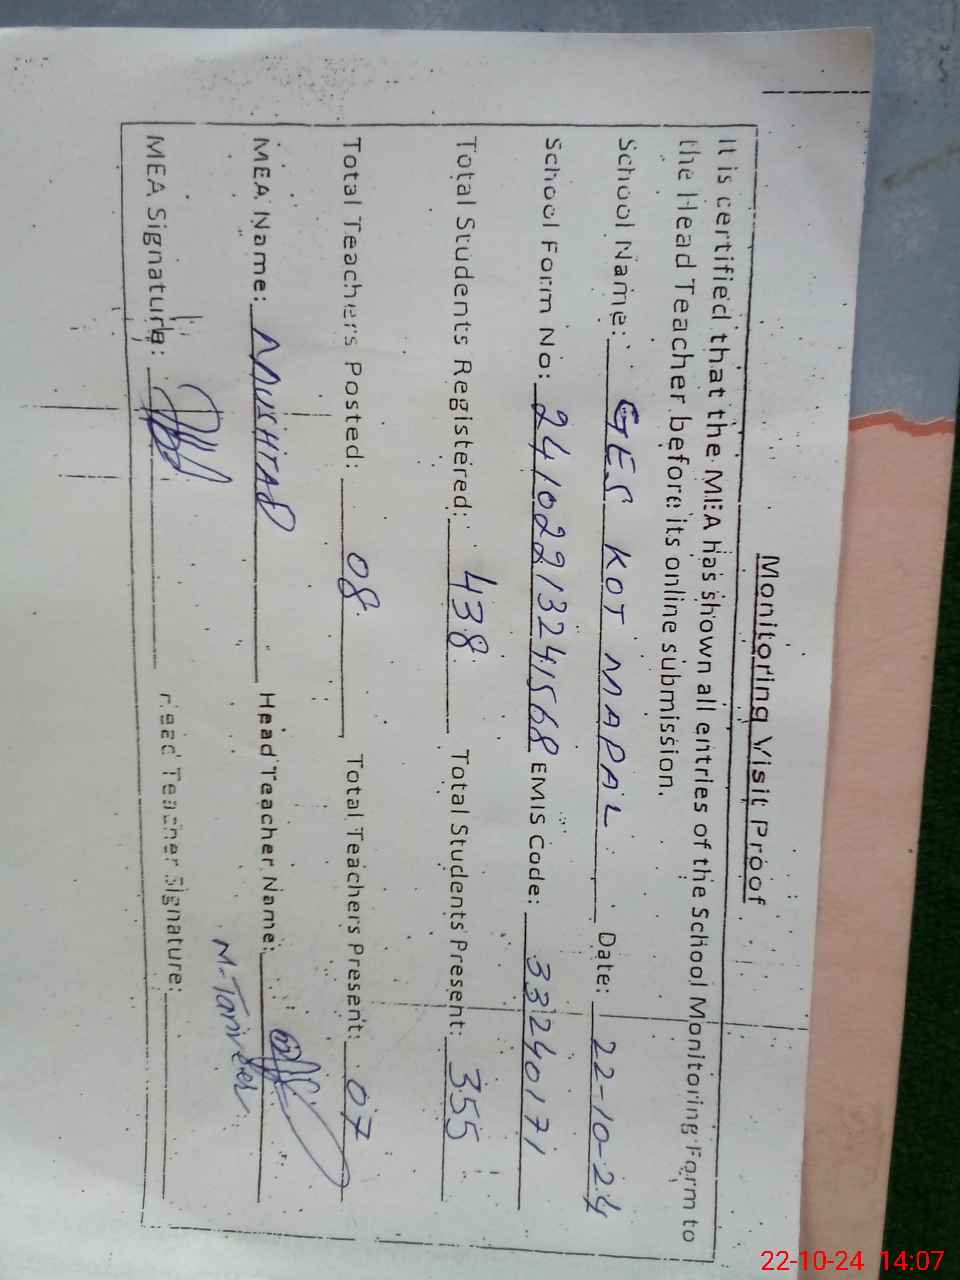 Monitoring Visit Proof
It is certified that the MEA has shown all entries of the School Monitoring Form to
the Head Teacher before its online submission.
School Name: GES KOT MAPAL Date: 22-10-24
School Form No: 24102213241568 EMIS Code: 33240171
Total Students Registered: 438 Total Students Present: 355
Total Teachers Posted: 08 Total Teachers Present: 07
MEA Name: Head Teacher Name:
M-Tanveer
MEA Signature: Head Teacher Signature:
22-10-24 14:07